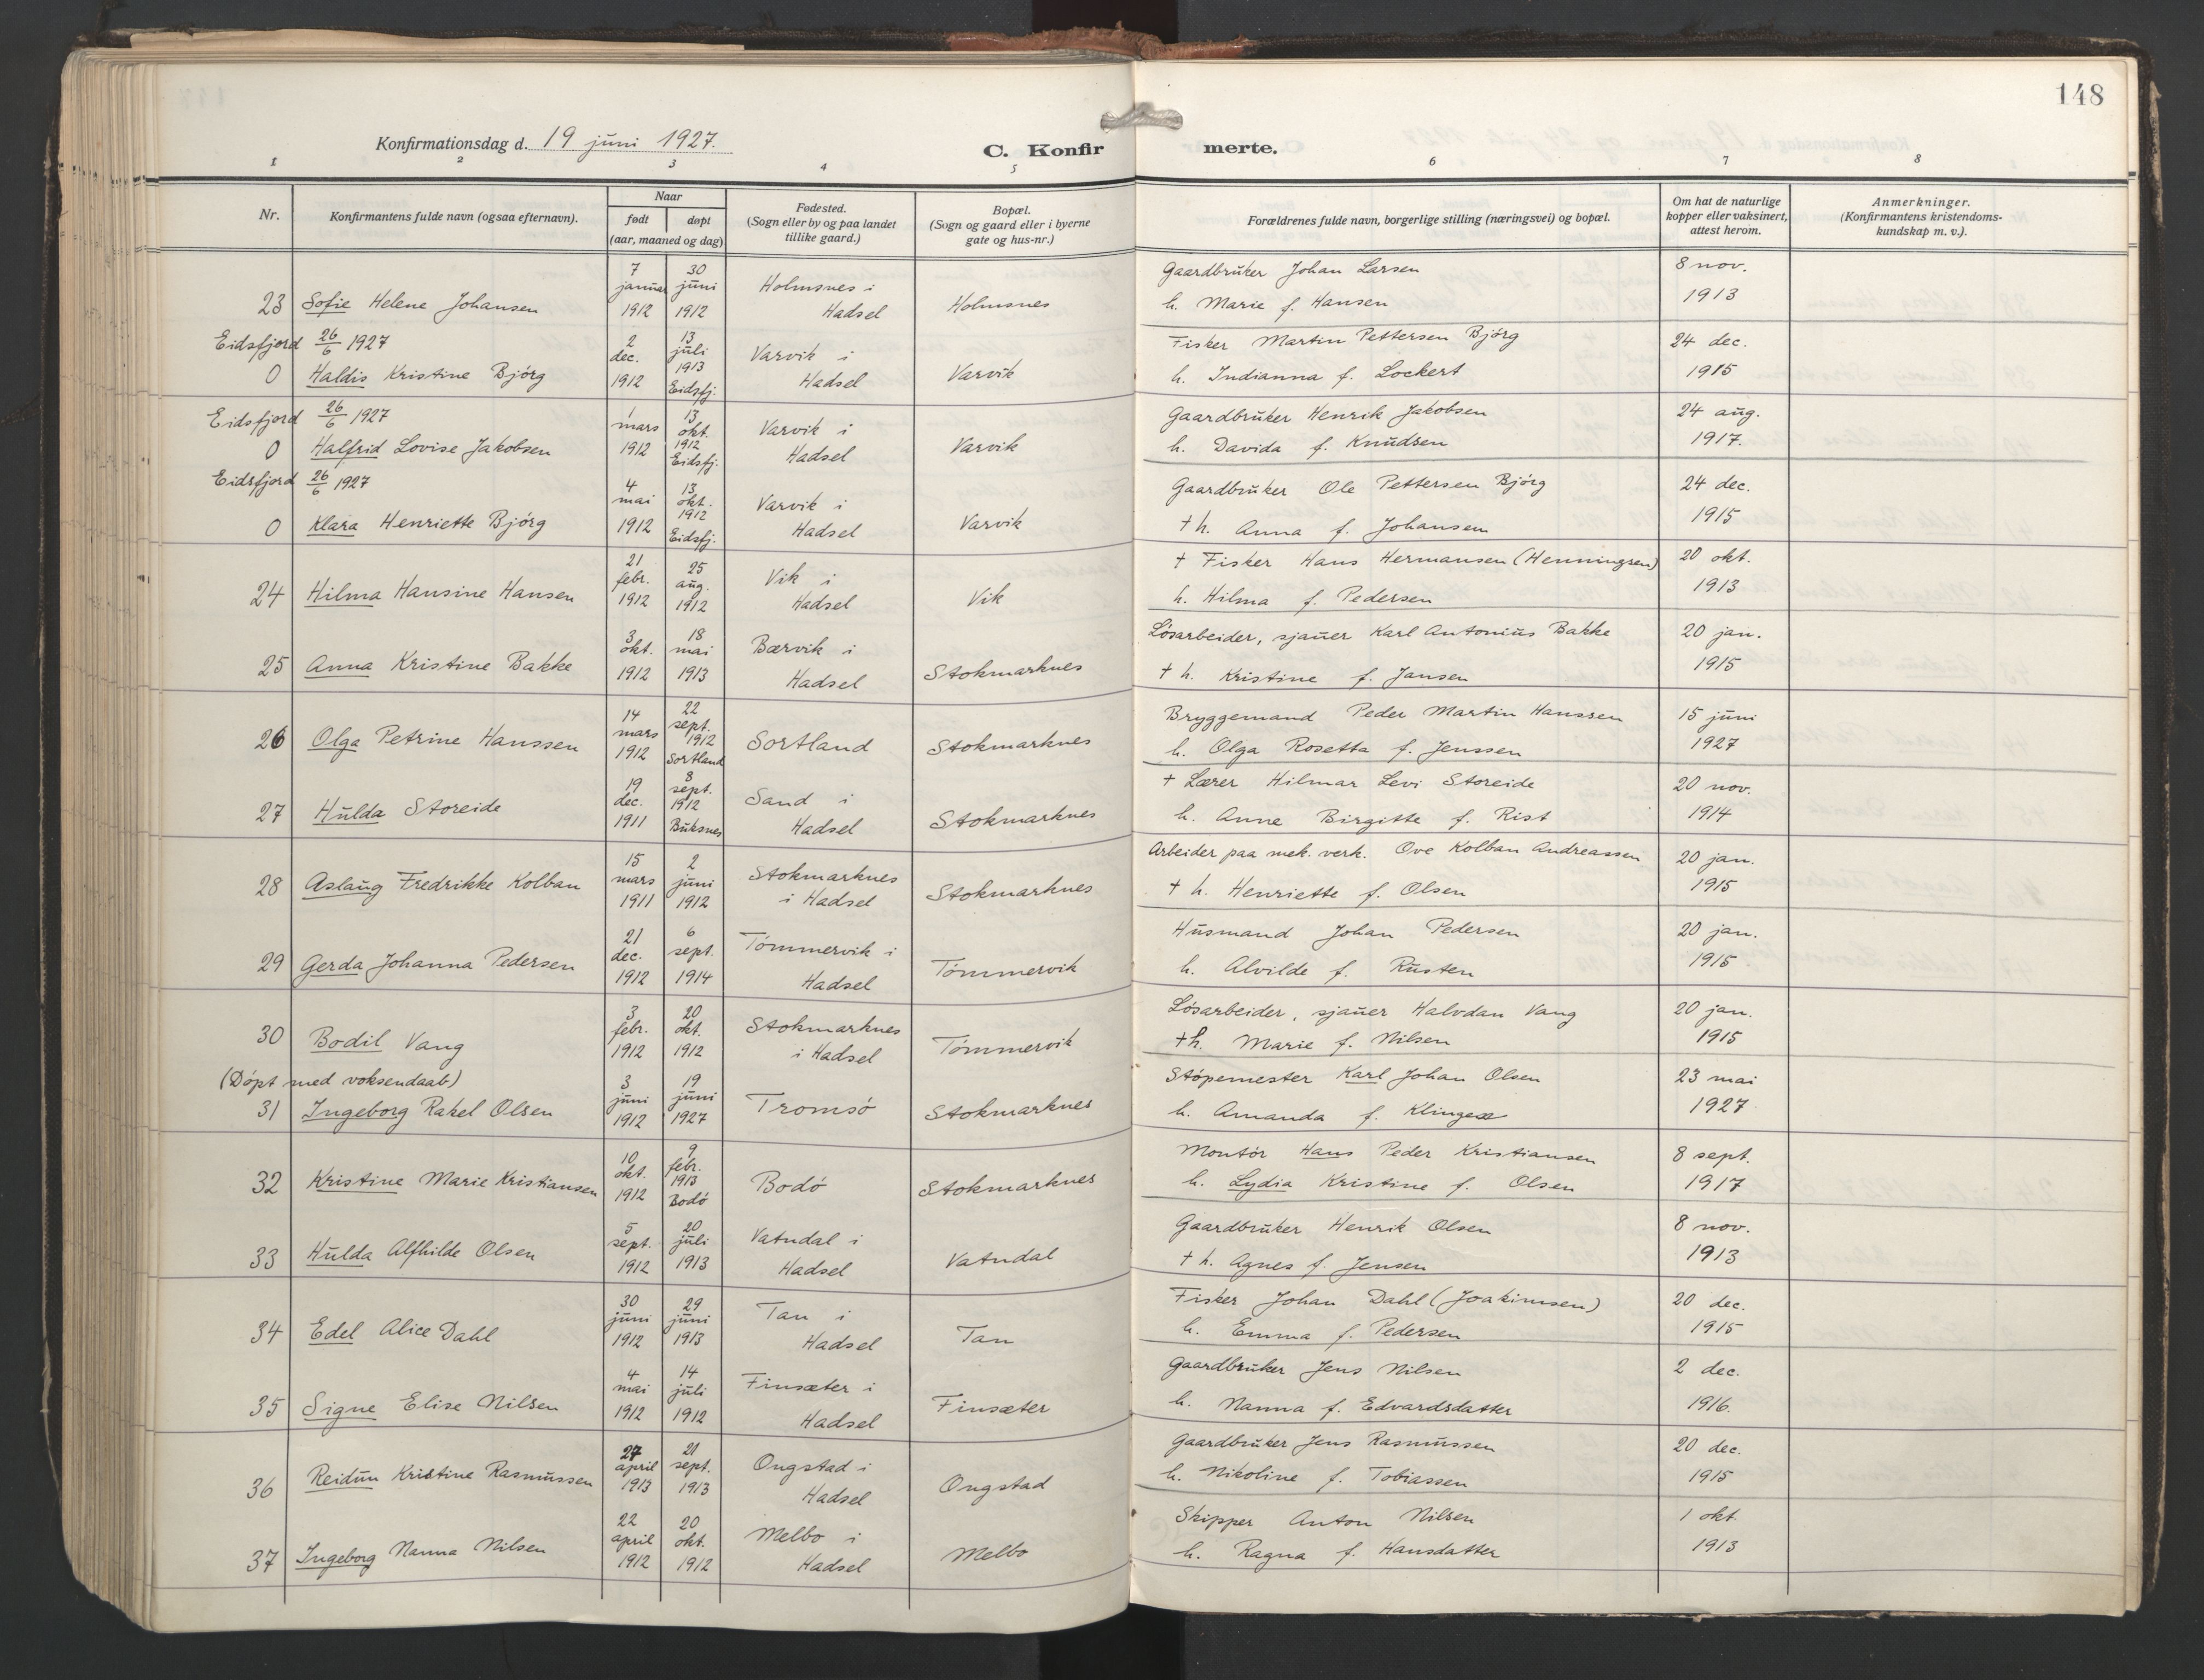 148
Konfirmationsdag d. 19 juni 1927.
C. Konfirmerte.
1 2 3 4 5 6 7 8
Nr.
Konfirmantens fulde navn (ogsaa efternavn).
Naar
født døpt
(aar, maaned og dag)
Fødested.
(Sogn eller by og paa landet
tillike gaard.)
Bopæl.
(Sogn og gaard eller i byerne
gate og hus-nr.)
Forældrenes fulde navn, borgerlige stilling (næringsvei) og bopæl.
Om hat de naturlige
kopper eller vaksinert,
attest herom.
Anmerkninger.
(Konfirmantens kristendoms-
kundskap m. v.).
23 Sofie Helene Johansen
7 januar 1912
30 juni 1912
Holmsnes i
Hadsel
Holmsnes
Gaardbruker Johan Larsen
h. Marie f. Hansen
8 nov.
1913
Eidsfjord 26/6 1927
0 Haldis Kristine Bjørg
2 dec. 1912
13 juli 1913 Eidsfj.
Varvik i
Hadsel
Varvik
Fisker Martin Pettersen Bjørg
h. Indianna f. Lockert
24 dec.
1915
Eidsfjord 26/6 1927
0 Halfrid Lovise Jakobsen
1 mars 1912
13 okt. 1912 Eidsfj.
Varvik i
Hadsel
Varvik
Gaardbruker Henrik Jakobsen
h. Davida f. Knudsen
24 aug.
1917.
Eidsfjord 26/6 1927
0 Klara Henriette Bjørg
4 mai 1912
13 okt. 1912 Eidsfj.
Varvik i
Hadsel
Varvik
Gaardbruker Ole Pettersen Bjørg
+ h. Anna f. Johansen
24 dec.
1915
24 Hilma Hansine Hansen
21 febr. 1912
25 aug. 1912
Vik i
Hadsel
Vik
+ Fisker Hans Hermansen (Henningsen)
h. Hilma f. Pedersen
20 okt.
1913
25 Anna Kristine Bakke
3 okt. 1912
18 mai 1913
Bærvik i
Hadsel
Stokmarknes
Løsarbeider, sjauer Karl Antonius Bakke
+ h. Kristine f. Jansen
20 jan.
1915
26 Olga Petrine Hanssen
14 mars 1912
22 sept. 1912 Sortland
Sortland
Stokmarknes
Bryggemand Peder Martin Hanssen
h. Olga Rosetta f. Jenssen
15 juni
1927
27 Hulda Storeide
19 dec. 1911
8 sept. 1912 Buksnes
Sand i
Hadsel
Stokmarknes
+ Lærer Hilmar Levi Storeide
h. Anne Birgitte f. Rist
20 nov.
1914
28 Aslaug Fredrikke Kolban
15 mars 1911
2 juni 1912
Stokmarknes
i Hadsel
Stokmarknes
Arbeider paa mek. verk. Ove Kolban Andreassen
+ h. Henriette f. Olsen
20 jan.
1915
29 Gerda Johanna Pedersen
21 dec. 1912
6 sept. 1914
Tømmervik i
Hadsel
Tømmervik
Husmand Johan Pedersen
h. Alvilde f. Rusten
20 jan.
1915
30 Bodil Vang
3 febr. 1912
20 okt. 1912
Stokmarknes
i Hadsel
Tømmervik
Løsarbeider, sjauer Halvdan Vang
+ h. Marie f. Nilsen
20 jan.
1915
(Døpt med voksendaab)
31 Ingeborg Rakel Olsen
3 juni 1912
19 juni 1927
Tromsø
Stokmarknes
Støpemester Karl Johan Olsen
h. Amanda f.
23 mai
1927
32 Kristine Marie Kristiansen
10 okt. 1912
9 febr. 1913 Bodø
Bodø
Stokmarknes
Montør Hans Peder Kristiansen
h. Lydia Kristine f. Olsen
8 sept.
1917
33 Hulda Alfhilde Olsen
5 sept. 1912
20 juli 1913
Vatndal i
Hadsel
Vatndal
Gaardbruker Henrik Olsen
+ h. Agnes f. Jensen
8 nov.
1913
34 Edel Alice Dahl
30 juni 1912
29 juni 1913
Tan i
Hadsel
Tan
Fisker Johan Dahl (Joakimsen)
h. Emma f. Pedersen
20 dec.
1915
35 Signe Elise Nilsen
4 mai 1912
14 juli 1912
Finsæter i
Hadsel
Finsæter
Gaardbruker Jens Nilsen
h. Nanna f. Edvardsdatter
2 dec.
1916.
36 Reidun Kristine Rasmussen
27 april 1913
21 sept. 1913
Ongstad i
Hadsel
Ongstad
Gaardbruker Jens Rasmussen
h. Nikoline f. Tobiassen
20 dec.
1915
37 Ingeborg Nanna Nilsen
22 april 1912
20 okt. 1912
Melbo i
Hadsel
Melbo
Skipper Anton Nilsen
h. Ragna f. Hansdatter
1 okt.
1913